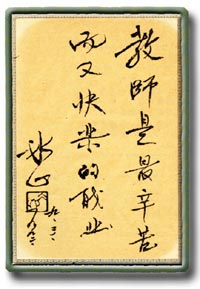 教師是最辛苦
而又快樂的職业
冰心